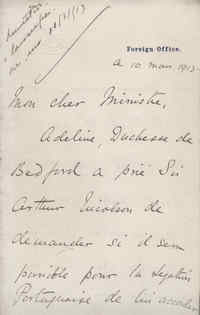 Foreign Office.
a 10. mars 1913.
Mon cher Ministre,
Adeline, Duchesse de
Bedford a prié Sir
Arthur Nicolson de
demander si il sera
possible pour la
Portugaise de lui accorder